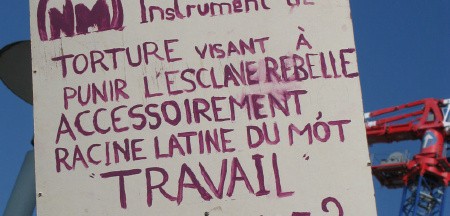 (NM) Instrument de
TORTURE VISANT À
PUNIR L'ESCLAVE REBELLE
ACCESSOIREMENT
RACINE LATINE DU MÓT
TRAVAIL
?